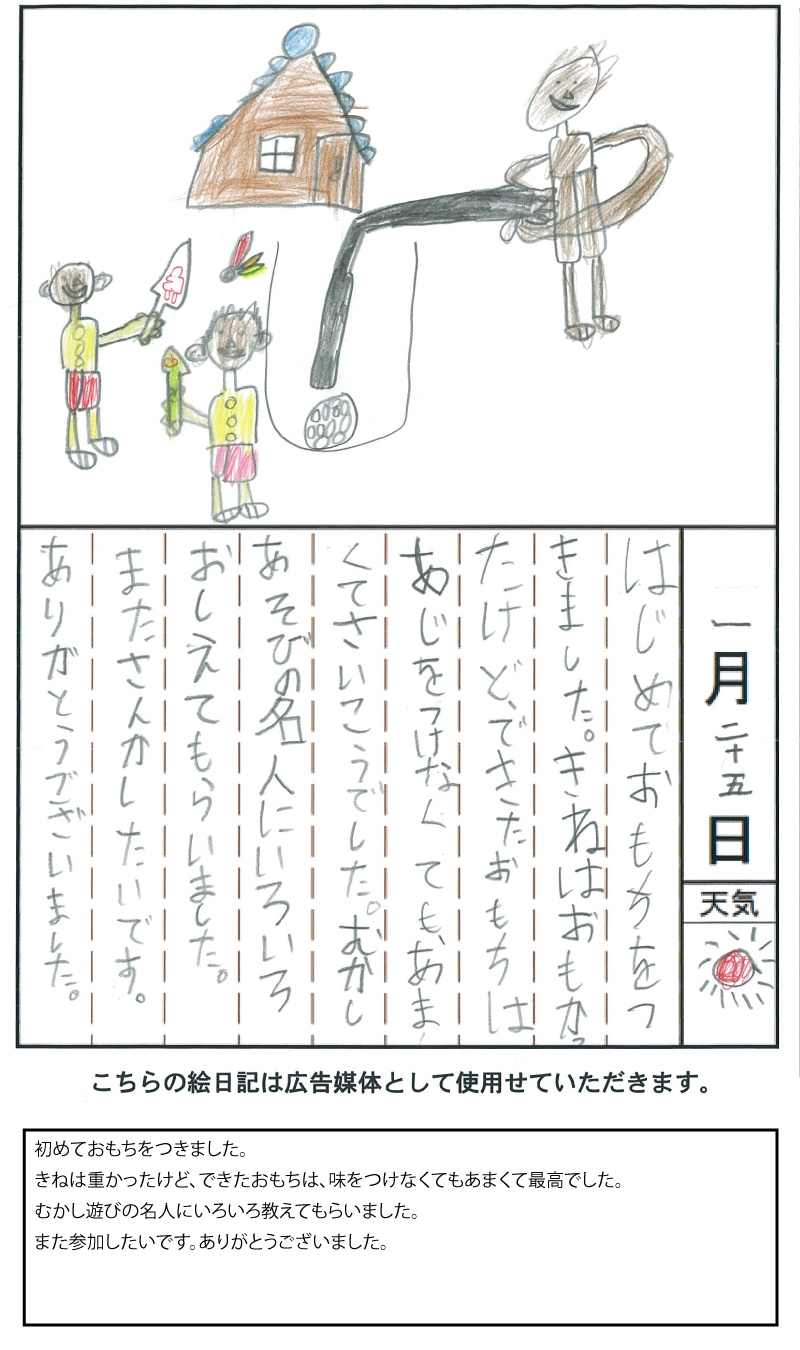 一月二十五日
天気
はじめておもちをつ
きました。きねはおもかっ
たけど、できたおもちは
あじをつけなくても、あま
くてさいこうでした。むかし
あそびの名人にいろいろ
おしえてもらいました。
またさんかしたいです。
ありがとうございました。
こちらの絵日記は広告媒体として使用せていただきます。
初めておもちをつきました。
きねは重かったけど、できたおもちは、味をつけなくてもあまくて最高でした。
むかし遊びの名人にいろいろ教えてもらいました。
また参加したいです。ありがとうございました。